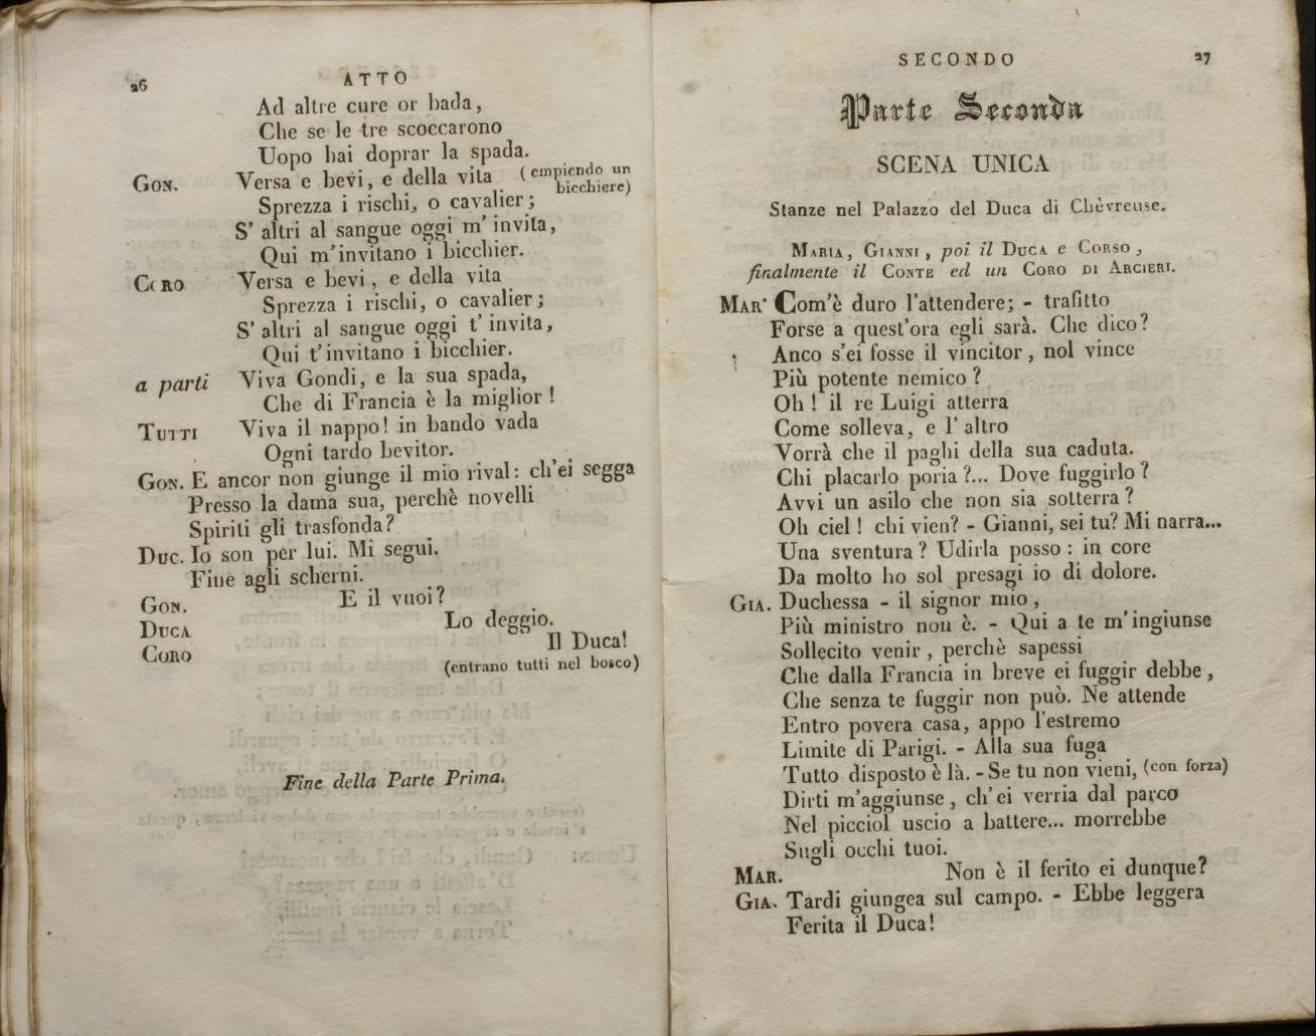 26
ATTO
Ad altre cure or bada,
Che se le tre scoccarono
Uopo hai doprar la spada.
GON. Versa e bevi, e della vita (empiendo un bicchiere)
Sprezza i rischi, o cavalier;
S' altri al sangue oggi m' invita,
Qui m'invitano i bicchier.
CORO Versa e bevi, e della vita
Sprezza i rischi, o cavalier;
S' altri al sangue oggi t' invita,
Qui t'invitano i bicchier.
a parti Viva Gondi, e la sua spada,
Che di Francia è la miglior!
TUTTI Viva il nappo! in bando vada
Ogni tardo bevitor.
GON. E ancor non giunge il mio rival: ch'ei segga
Presso la dama sua, perchè novelli
Spiriti gli trasfonda?
DUC. Io son per lui. Mi segui.
Fine agli scherni.
GON. E il vuoi?
DUCA Lo deggio.
CORO Il Duca!
(entrano tutti nel bosco)
Fine della Parte Prima.
SECONDO
27
Parte Seconda
SCENA UNICA
Stanze nel Palazzo del Duca di Chèvreuse.
MARIA, GIANNI, poi il DUCA e CORSO,
finalmente il CONTE ed un CORO DI ARCIERI.
MAR. Com'è duro l'attendere; - trafitto
Forse a quest'ora egli sarà. Che dico?
Anco s'ei fosse il vincitor, nol vince
Più potente nemico?
Oh! il re Luigi atterra
Come solleva, e l' altro
Vorrà che il paghi della sua caduta.
Chi placarlo poria?... Dove fuggirlo?
Avvi un asilo che non sia sotterra?
Oh ciel! chi vien? - Gianni, sei tu? Mi narra...
Una sventura? Udirla posso: in core
Da molto ho sol presagi io di dolore.
GIA. Duchessa - il signor mio,
Più ministro non è. - Qui a te m'ingiunse
Sollecito venir, perchè sapessi
Che dalla Francia in breve ei fuggir debbe,
Che senza te fuggir non può. Ne attende
Entro povera casa, appo l'estremo
Limite di Parigi. - Alla sua fuga
Tutto disposto è là. - Se tu non vieni, (con forza)
Dirti m'aggiunse, ch'ei verria dal parco
Nel picciol uscio a battere... morrebbe
Sugli occhi tuoi.
MAR. Non è il ferito ei dunque?
GIA. Tardi giungea sul campo. - Ebbe leggera
Ferita il Duca!